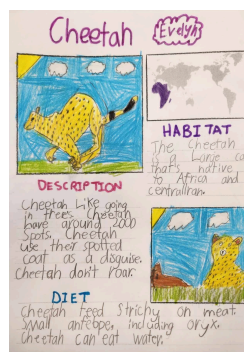 Cheetah
Evelyn
HABITAT
The Cheetah
is a Large ca
that's native
to Africa and
centralIran.
DESCRIPTION
Cheetah Like going
in trees. Cheetah
have around 2000
spots. Cheetah
use ther spotted
coat as a disguise.
Cheetah don't roar.
DIET
Cheetah feed Strichy on meat.
small anteope, including oryx.
Cheetah can eat water.